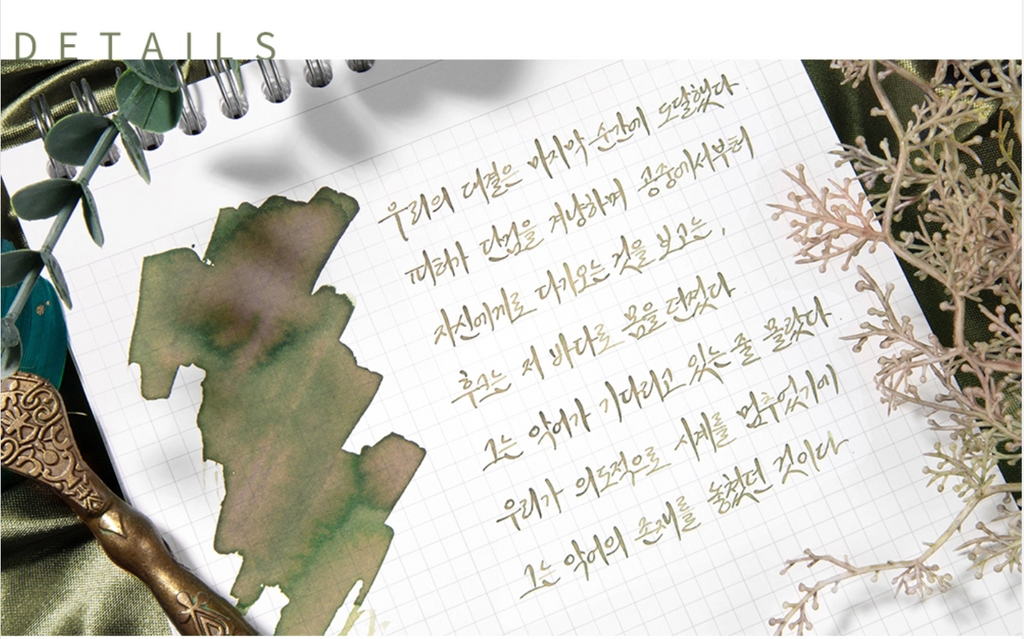 DETAILS
우리의 대결은 마지막 순간에 도달했다.
피터가 단검을 겨냥하며 공중에서부터
자신에게로 다가오는 것을 보고는,
후크는 저 바다로 몸을 던졌다.
그는 악어가 기다리고 있는 줄 몰랐다.
우리가 의도적으로 시계를 멈추었기에
그는 악어의 존재를 놓쳤던 것이다.